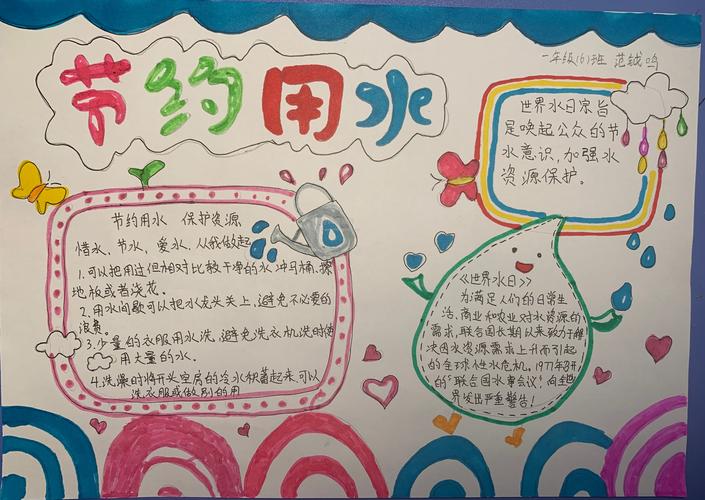 节约用水
一年级(6)班 范钺鸣
世界水日宗旨
是唤起公众的节
水意识,加强水
资源保护。
节约用水 保护资源
惜水、节水、爱水、从我做起
1.可以把用过但相对比较干净的水冲马桶、擦
地板或者浇花。
2.用水间歇可以把水龙头关上,避免不必要的
浪费。
3.少量的衣服用水洗,避免洗衣机洗时使
用大量的水。
4.洗澡时将开头空放的冷水积蓄起来,可以
洗衣服或做别的用
《世界水日》
为满足人们的日常生
活、商业和农业对水资源的
需求,联合国长期以来致力于解
决因水资源需求上升而引起
的全球性水危机。1977年召开
的"联合国水事会议"向全世
界发出严重警告!